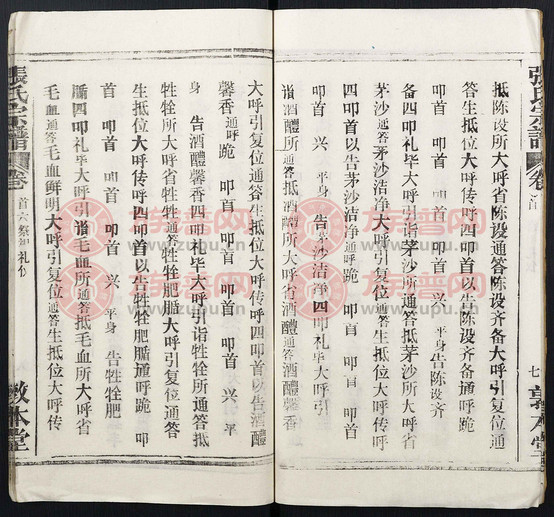 抵陈设所大呼省陈设通答陈设齐备大呼引复位通
答生抵位大呼传呼四叩首以告陈设齐备通呼跪
叩首 叩首 叩首 叩首 兴 平身告陈设齐
备四叩礼毕大呼引诣茅沙所通答抵茅沙所大呼省
茅沙通答茅沙洁净大呼引复位通答生抵位大呼传呼
四叩首以告茅沙洁净通呼跪 叩首 叩首 叩首
叩首 兴 平身 告茅沙洁净四叩礼毕大呼引
诣酒醴所通答抵酒醴所大呼省酒醴通答酒醴馨香
大呼引复位通答生抵位大呼传呼四叩首以告酒醴
馨香通呼跪 叩首 叩首 叩首 叩首 兴 平
身 告酒醴馨香四叩礼毕大呼引诣牲牷所通答抵
牲牷所大呼省牲牷通答牲牷肥腯大呼引复位通答
生抵位大呼传呼四叩首以告牲牷肥腯通呼跪 叩
首 叩首 叩首 叩首 兴 平身 告牲牷肥
腯四叩礼毕大呼引诣毛血所通答抵毛血所大呼省
毛血通答毛血鲜明大呼引复位通答生抵位大呼传
張氏宗譜
卷首
六祭祀礼仪
敦本堂
張氏宗譜
卷首
七
敦本堂